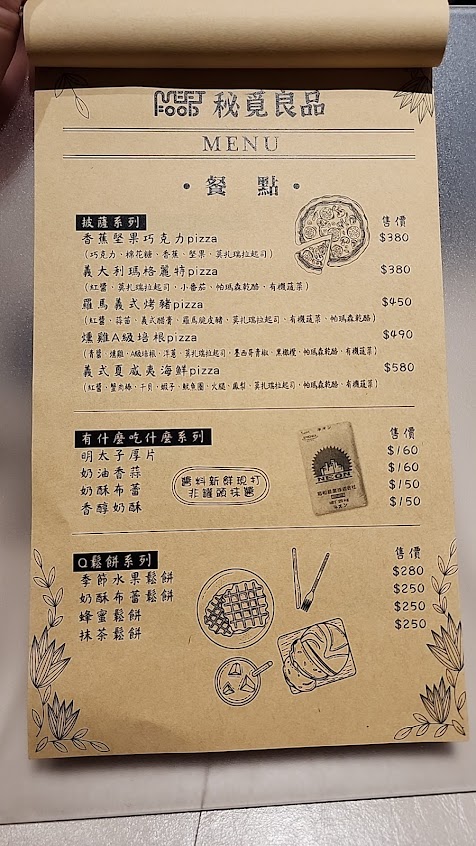 MEET FOOD 秘覓良品
MENU
• 餐 點 •
披薩系列 售價
香蕉堅果巧克力pizza $380
(巧克力、棉花糖、香蕉、堅果、莫扎瑞拉起司)
義大利瑪格麗特pizza $380
(紅醬、莫扎瑞拉起司、小番茄、帕瑪森乾酪、有機蔬菜)
羅馬義式烤豬pizza $450
(紅醬、蒜苗、義式醋膏、羅馬脆皮豬、莫扎瑞拉起司、有機蔬菜、帕瑪森乾酪)
燻雞A級培根pizza $490
(青醬、燻雞、A級培根、洋蔥、莫扎瑞拉起司、墨西哥青椒、黑橄欖、帕瑪森乾酪、有機蔬菜)
義式夏威夷海鮮pizza $580
(紅醬、蟹肉棒、干貝、蝦子、魷魚圈、火腿、鳳梨、莫扎瑞拉起司、帕瑪森乾酪、有機蔬菜)
有什麼吃什麼系列 售價
明太子厚片 $160
奶油香蒜 $160
奶酥布蕾 $150
香醇奶酥 $150
醬料新鮮現打
非罐頭抹醬
NEON
Q鬆餅系列 售價
季節水果鬆餅 $280
奶酥布蕾鬆餅 $250
蜂蜜鬆餅 $250
抹茶鬆餅 $250